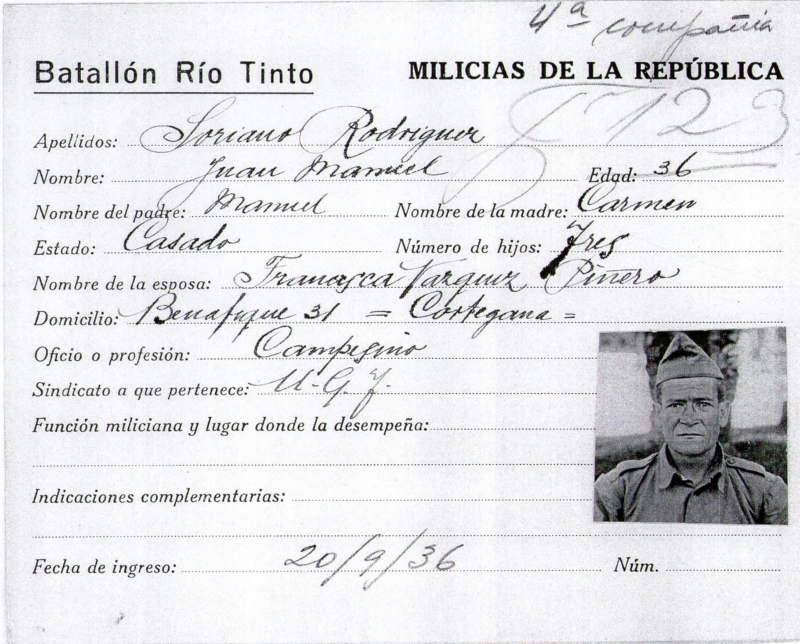 4ª compañia
Batallón Río Tinto MILICIAS DE LA REPÚBLICA
123
Apellidos: Soriano Rodriguez
Nombre: Juan Manuel Edad: 36
Nombre del padre: Manuel Nombre de la madre: Carmen
Estado: Casado Número de hijos: Tres
Nombre de la esposa: Francisca Vazquez Piñero
Domicilio: 31 = Cortegana =
Oficio o profesión: Campesino
Sindicato a que pertenece: U.G.T.
Función miliciana y lugar donde la desempeña:
Indicaciones complementarias:
Fecha de ingreso: 20/9/36 Núm.